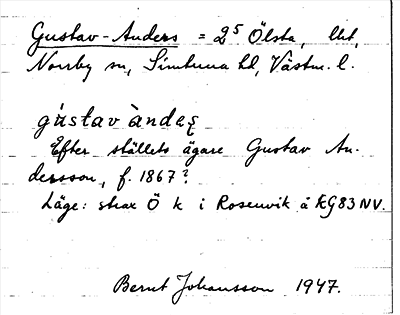 Gustav-Anders = 2⁵ Ölsta, lht,
Norrby sn, Simtuna hd, Västm. l.
gùstav àndaʂ
Efter ställets ägare Gustav An-
dersson, f. 1867?
Läge: strax Ö k i Rosenvik å kg83NV.
Bernt Johansson 1947.